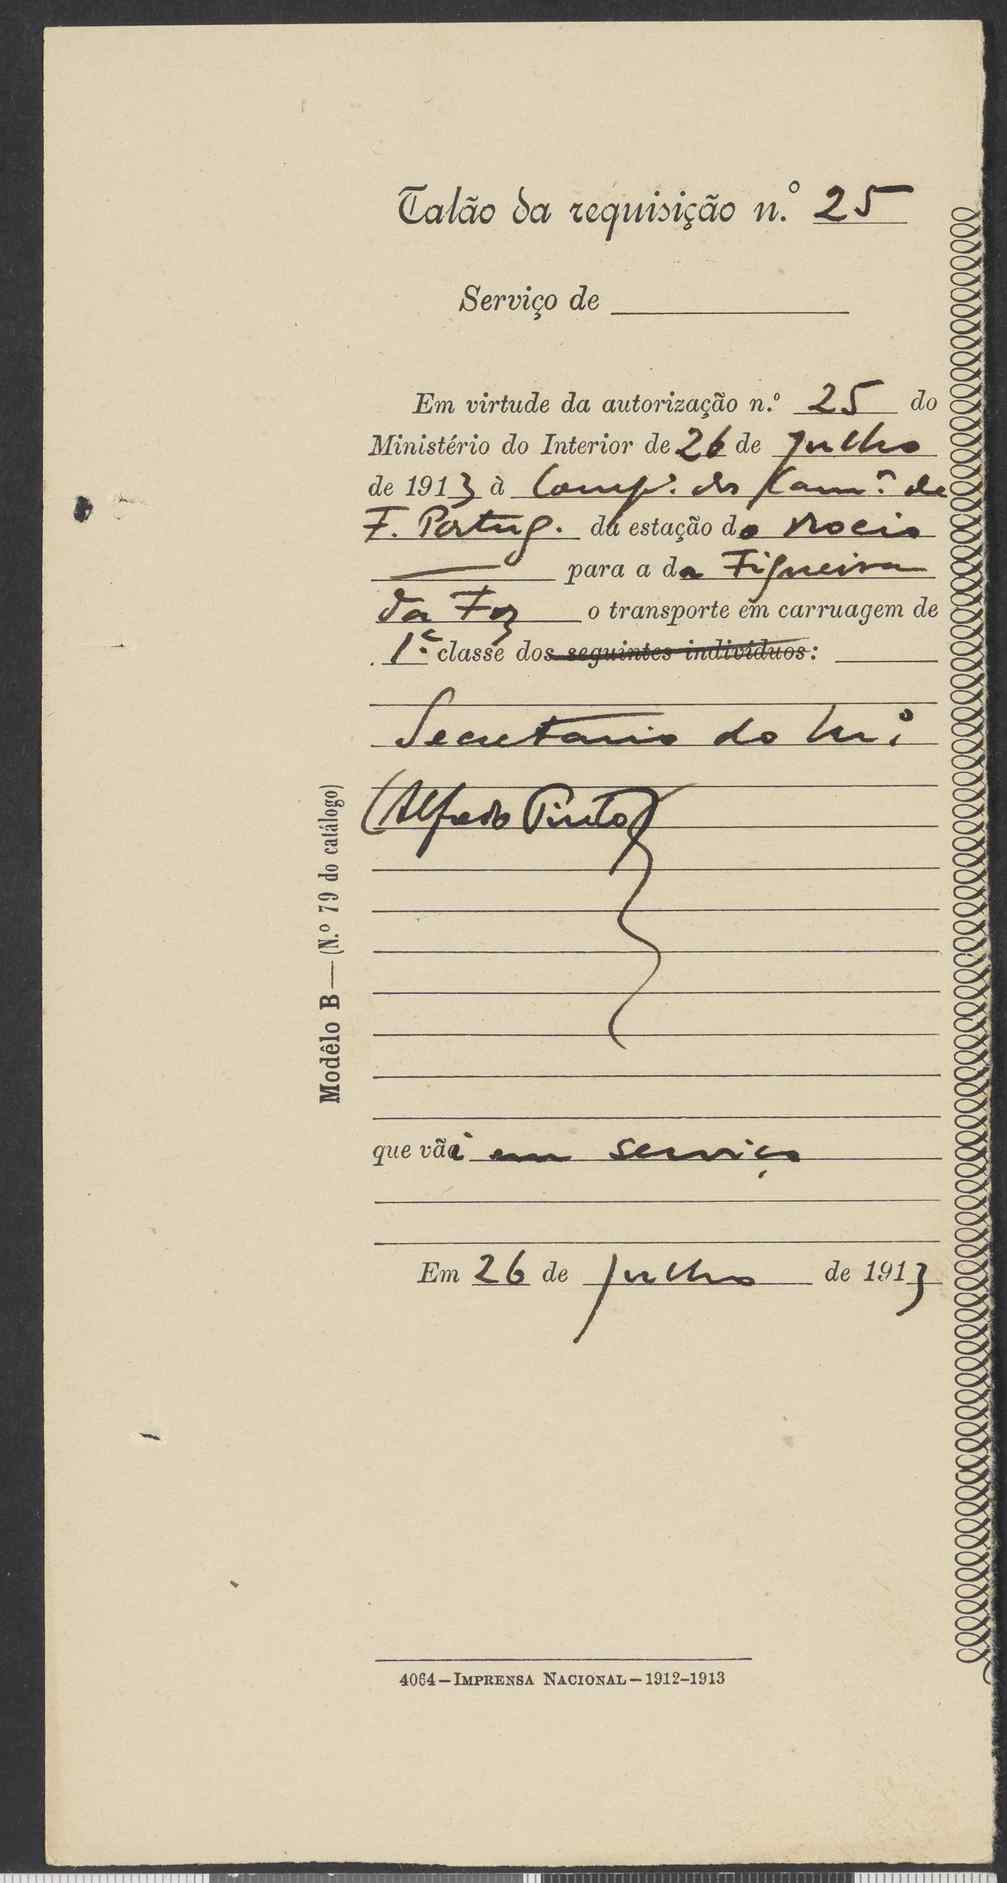 Talão da requisição n.º 25
Serviço de
Em virtude da autorização n.º 25 do
Ministério do Interior de 26 de Julho
de 1913 à Comp.ª dos Cam.os de
F. Portug. da estação do Rocio
para a da Figueira
da Foz o transporte em carruagem de
1.ª classe dos seguintes indivíduos:
Secretario do M.º
(Alfredo Pinto)
que vai em serviço
Em 26 de Julho de 1913
Modêlo B—(N.º 79 do catálogo)
4064—IMPRENSA NACIONAL—1912-1913